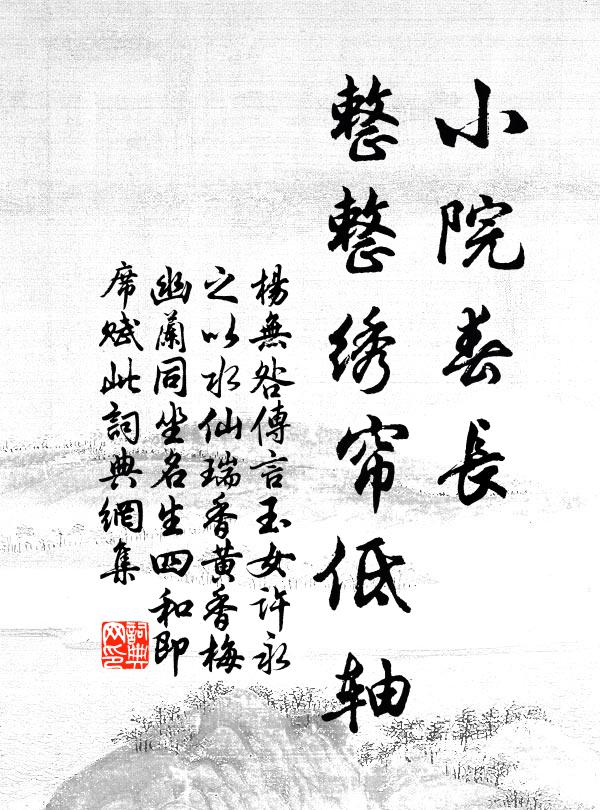 小院春長
整整绣帘低轴
楊無咎傳言玉女許永
之以水仙瑞香黃香梅
幽蘭同坐名生四和即
席赋此詞典網集
詞典
网印